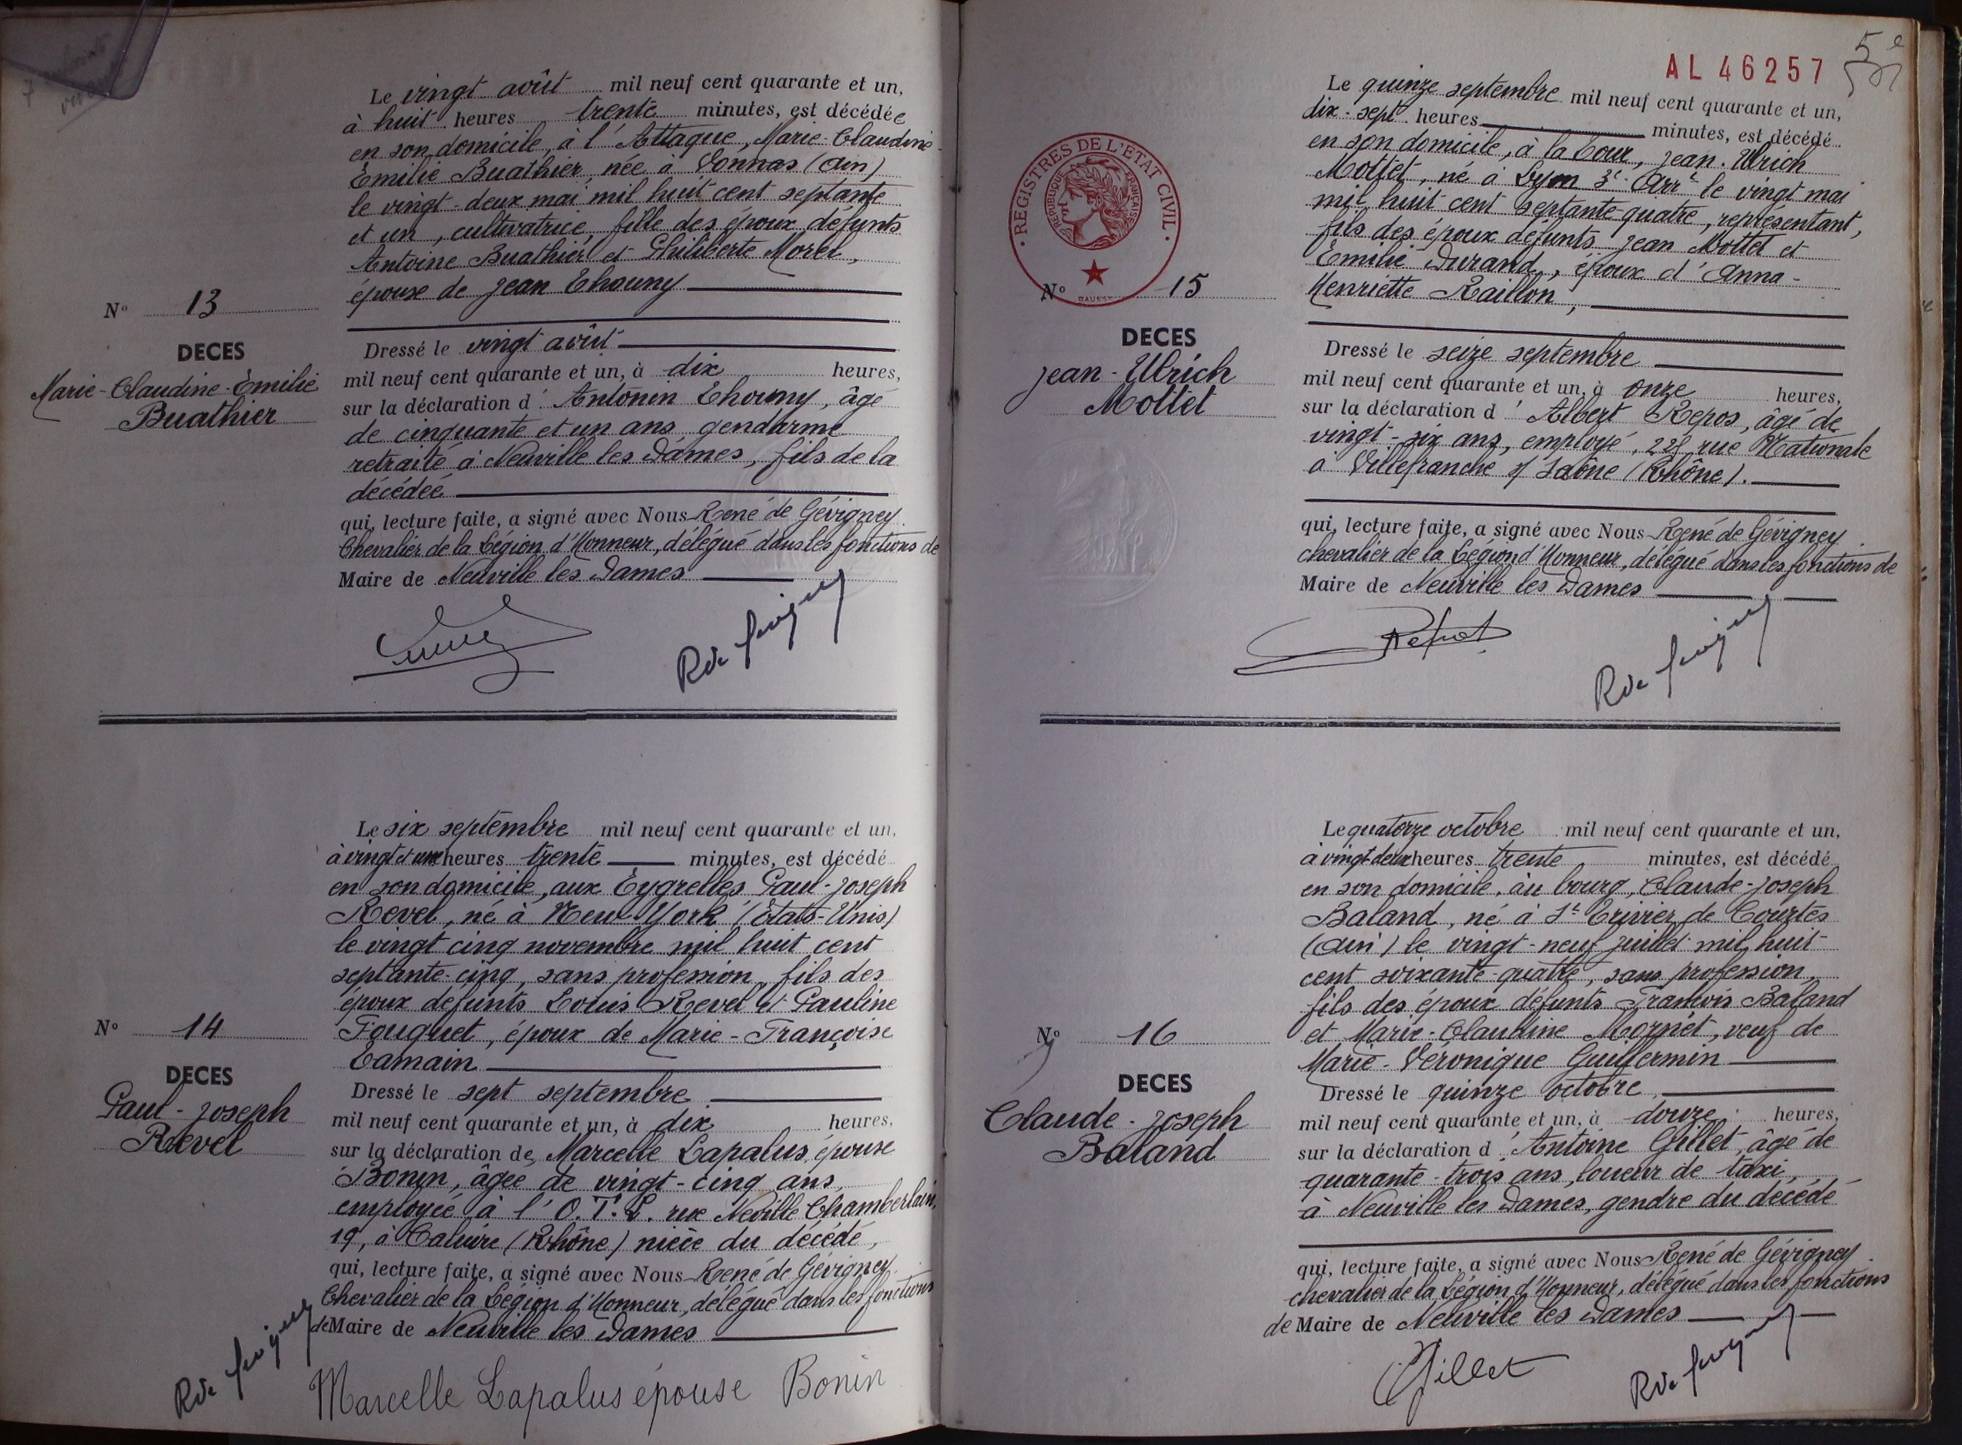 Le vingt août mil neuf cent quarante et un,
à huit heures trente minutes, est décédée
en son domicile, à l'Attaque, Marie-Claudine-
Emilie Buathier, née à Vonnas (Ain)
le vingt-deux mai mil huit cent septante
et un, cultivatrice, fille des époux défunts
Antoine Buathier et Philiberte Morel,
épouse de Jean Thouny
N° 13
DECES
Marie-Claudine-Emilie
Buathier
Dressé le vingt août
mil neuf cent quarante et un, à dix heures,
sur la déclaration d'Antonin Thouny, âgé
de cinquante et un ans gendarme
retraité à Neuville les Dames, fils de la
décédée
qui, lecture faite, a signé avec Nous René de Gévigney
Chevalier de la Légion d'Honneur, délégué dans les fonctions de
Maire de Neuville les Dames
R de Gévigney
Le six septembre mil neuf cent quarante et un,
à vingt et une heures trente minutes, est décédé
en son domicile, aux Eygrelles Paul-Joseph
Revel, né à New-York (Etats-Unis)
le vingt cinq novembre mil huit cent
septante-cinq, sans profession, fils des
époux défunts Louis Revel et Pauline
Fouquet, époux de Marie-Françoise
Lamain
N° 14
DECES
Paul-Joseph
Revel
Dressé le sept septembre
mil neuf cent quarante et un, à dix heures,
sur la déclaration de Marcelle Lapalus, épouse
Bonin, âgée de vingt-cinq ans,
employée à l'O.T.L. rue Neville Chamberlain,
19, à Caluire (Rhône) nièce du décédé,
qui, lecture faite, a signé avec Nous René de Gévigney
Chevalier de la Légion d'Honneur, délégué dans les fonctions
de Maire de Neuville les Dames
R de Gévigney
Marcelle Lapalus épouse Bonin
AL 46257
5e
Le quinze septembre mil neuf cent quarante et un,
dix-sept heures minutes, est décédé
en son domicile, à la Cour, Jean-Ulrich
Mottet, né à Lyon 3e Arrt le vingt mai
mil huit cent septante quatre, représentant,
fils des époux défunts Jean Mottet et
Emilie Durand, époux d'Anna-
Henriette Raillon,
REGISTRES DE L'ETAT CIVIL
REPUBLIQUE FRANÇAISE
N° 15
DECES
Jean-Ulrich
Mottet
Dressé le seize septembre
mil neuf cent quarante et un, à onze heures,
sur la déclaration d'Albert Repos, âgé de
vingt-six ans, employé, 228 rue Nationale
à Villefranche s/ Saône (Rhône).
qui, lecture faite, a signé avec Nous René de Gévigney
chevalier de la Légion d'Honneur, délégué dans les fonctions de
Maire de Neuville les Dames
R de Gévigney
Le quatorze octobre mil neuf cent quarante et un,
à vingt deux heures trente minutes, est décédé
en son domicile, au bourg, Claude-Joseph
Baland, né à St Trivier de Courtes
(Ain) le vingt-neuf juillet mil huit-
cent soixante-quatre, sans profession,
fils des époux défunts François Baland
et Marie-Claudine Mornet, veuf de
Marie-Véronique Guillermin
N° 16
DECES
Claude-Joseph
Baland
Dressé le quinze octobre
mil neuf cent quarante et un, à douze heures,
sur la déclaration d'Antoine Gillet, âgé de
quarante-trois ans, loueur de taxi,
à Neuville les Dames, gendre du décédé
qui, lecture faite, a signé avec Nous René de Gévigney
chevalier de la Légion d'Honneur, délégué dans les fonctions
de Maire de Neuville les Dames
Gillet R de Gévigney